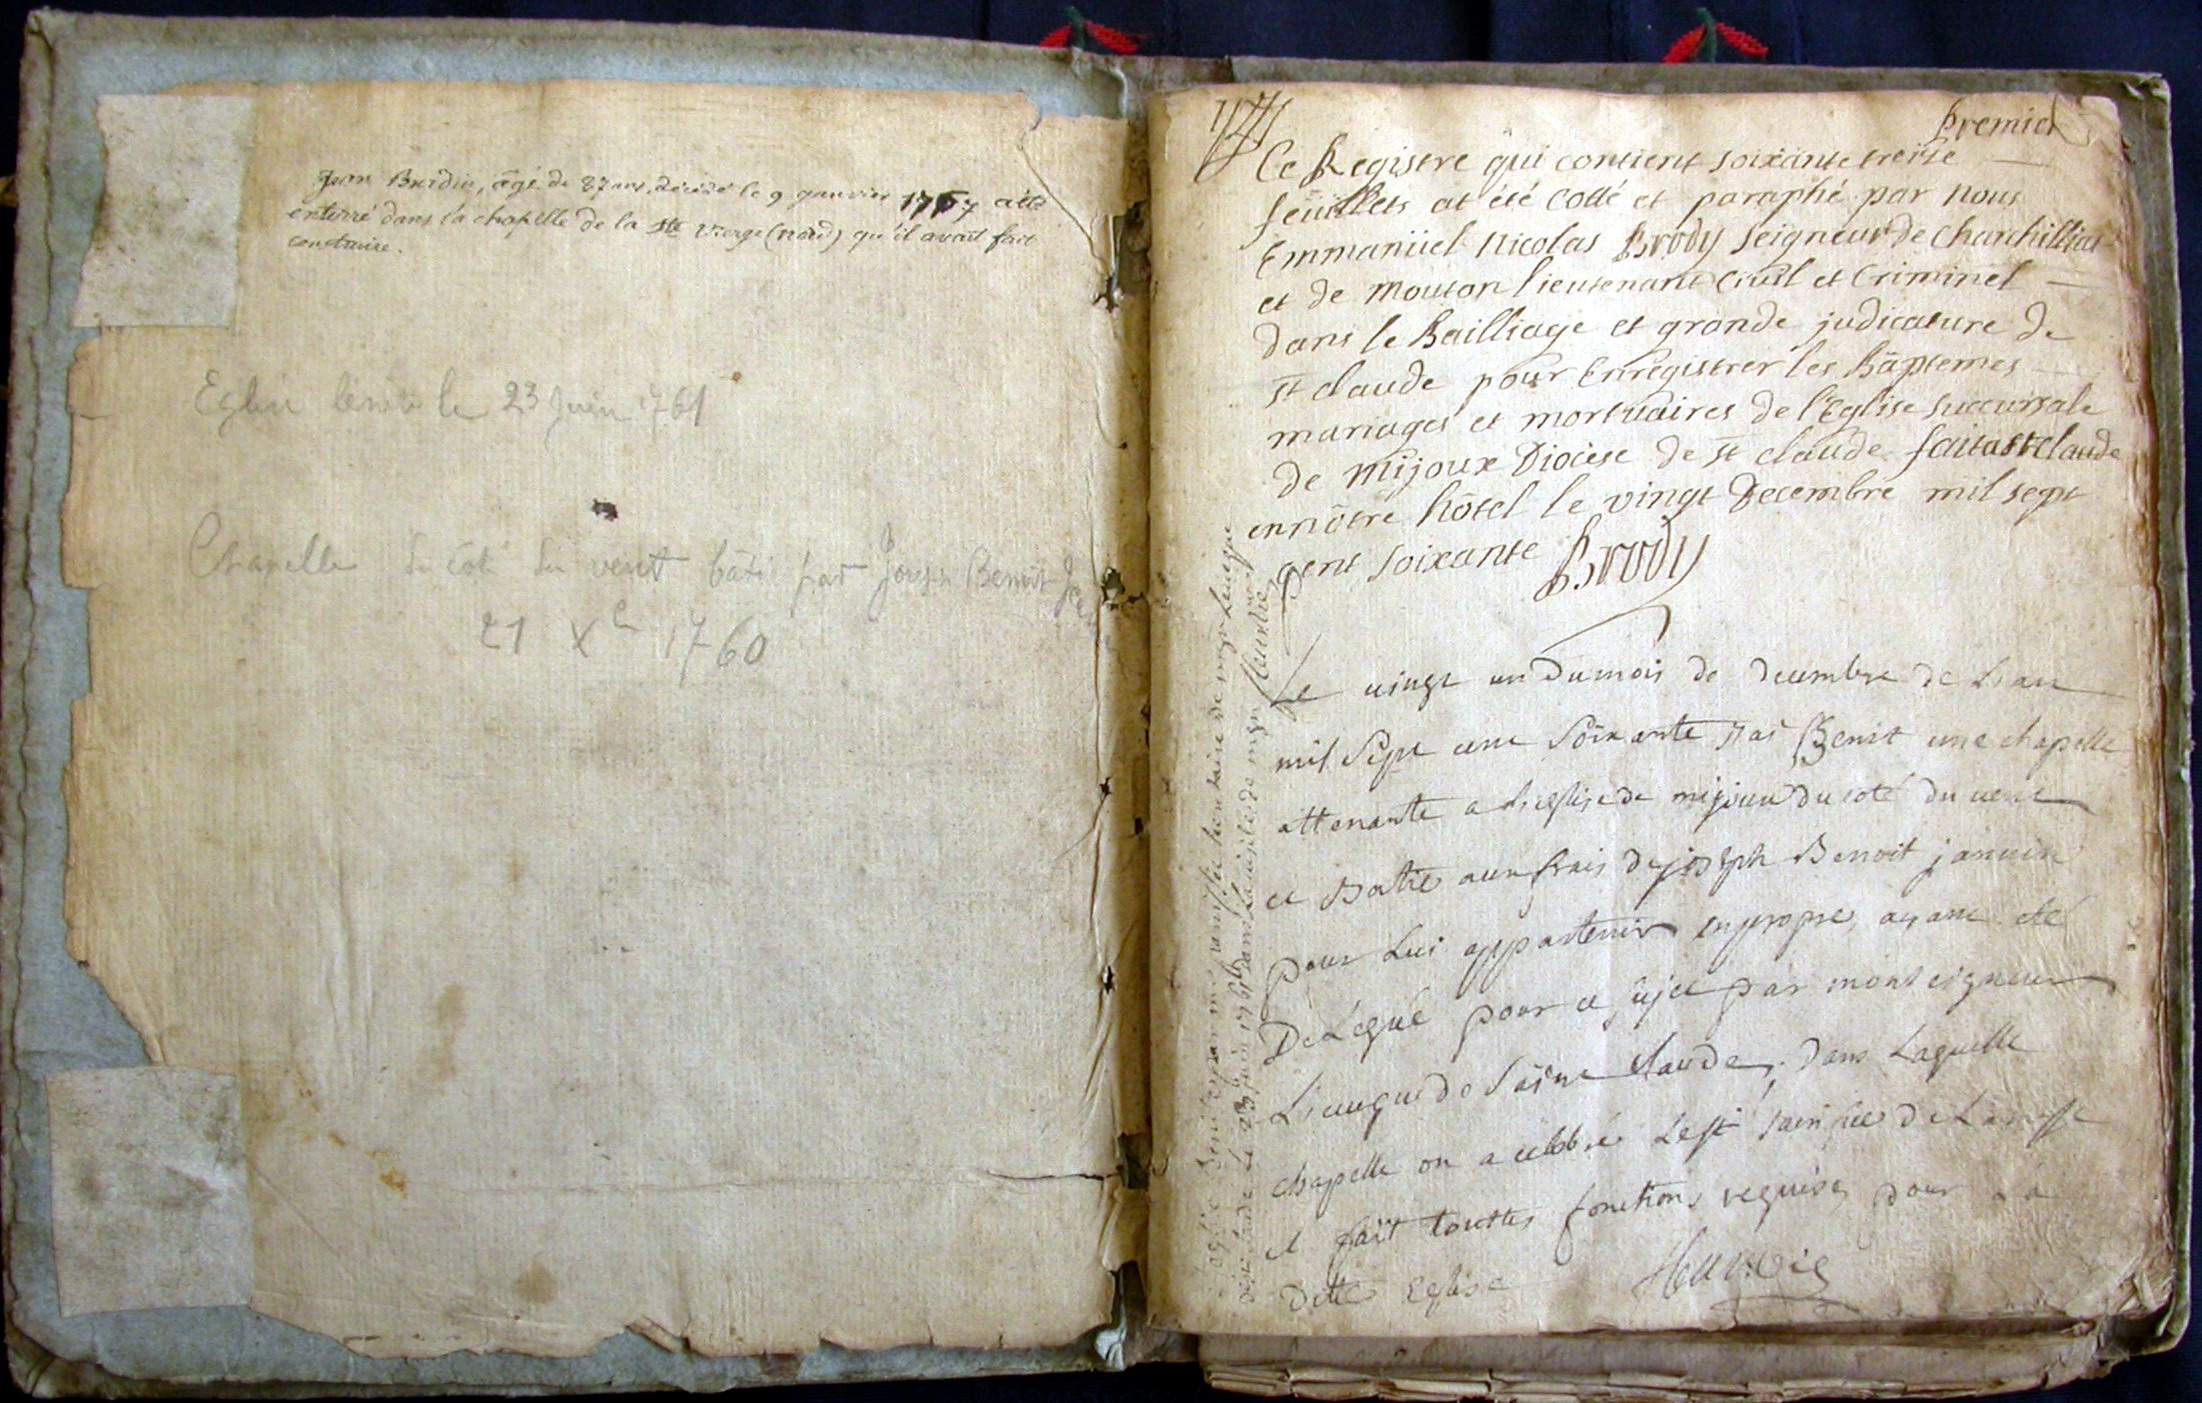 Jean Burdin, âgé de 87 ans, décédé le 9 janvier 1767 a été
enterré dans la chapelle de la Ste Vierge (nord) qu'il avait fait
construire.
Eglise bénite le 23 Juin 1761
Chapelle du coté du vent batie par Joseph Benoit
21 Xbre 1760
Premier
Ce Registre qui contient soixante treize
feüillets at été cotté et paraphé par nous
Emmanüel Nicolas Brody seigneur de Charchillia
et de Mouton lieutenant Civil et Criminel
dans le Bailliage et grande judicature de
st claude pour Enregistrer les Baptemes
mariages et mortuaires de l'Eglise succursale
de Mijoux Diocèse de st claude. fait a st claude
en nôtre hôtel le vingt Decembre mil sept
cent soixante Brody
Le vingt un du mois de decembre de L'an
mil sept cent soixante j'ai Benit une chapelle
attenante a L'eglise de mijoux du coté du vent
et Batie aux frais de joseph Benoit janvin
pour Lui appartenir en propre, ayant eté
DeLegué pour ce sujet par monseigneur
L'eveque de Saint Claude, dans Laquelle
chapelle on a celebré Le st sacrifice de La messe
et fait touttes fonctions requises pour La
ditte Eglise
L'eglise benite par
de st Claude Le 23 juin 1761 dans La visite de mgr